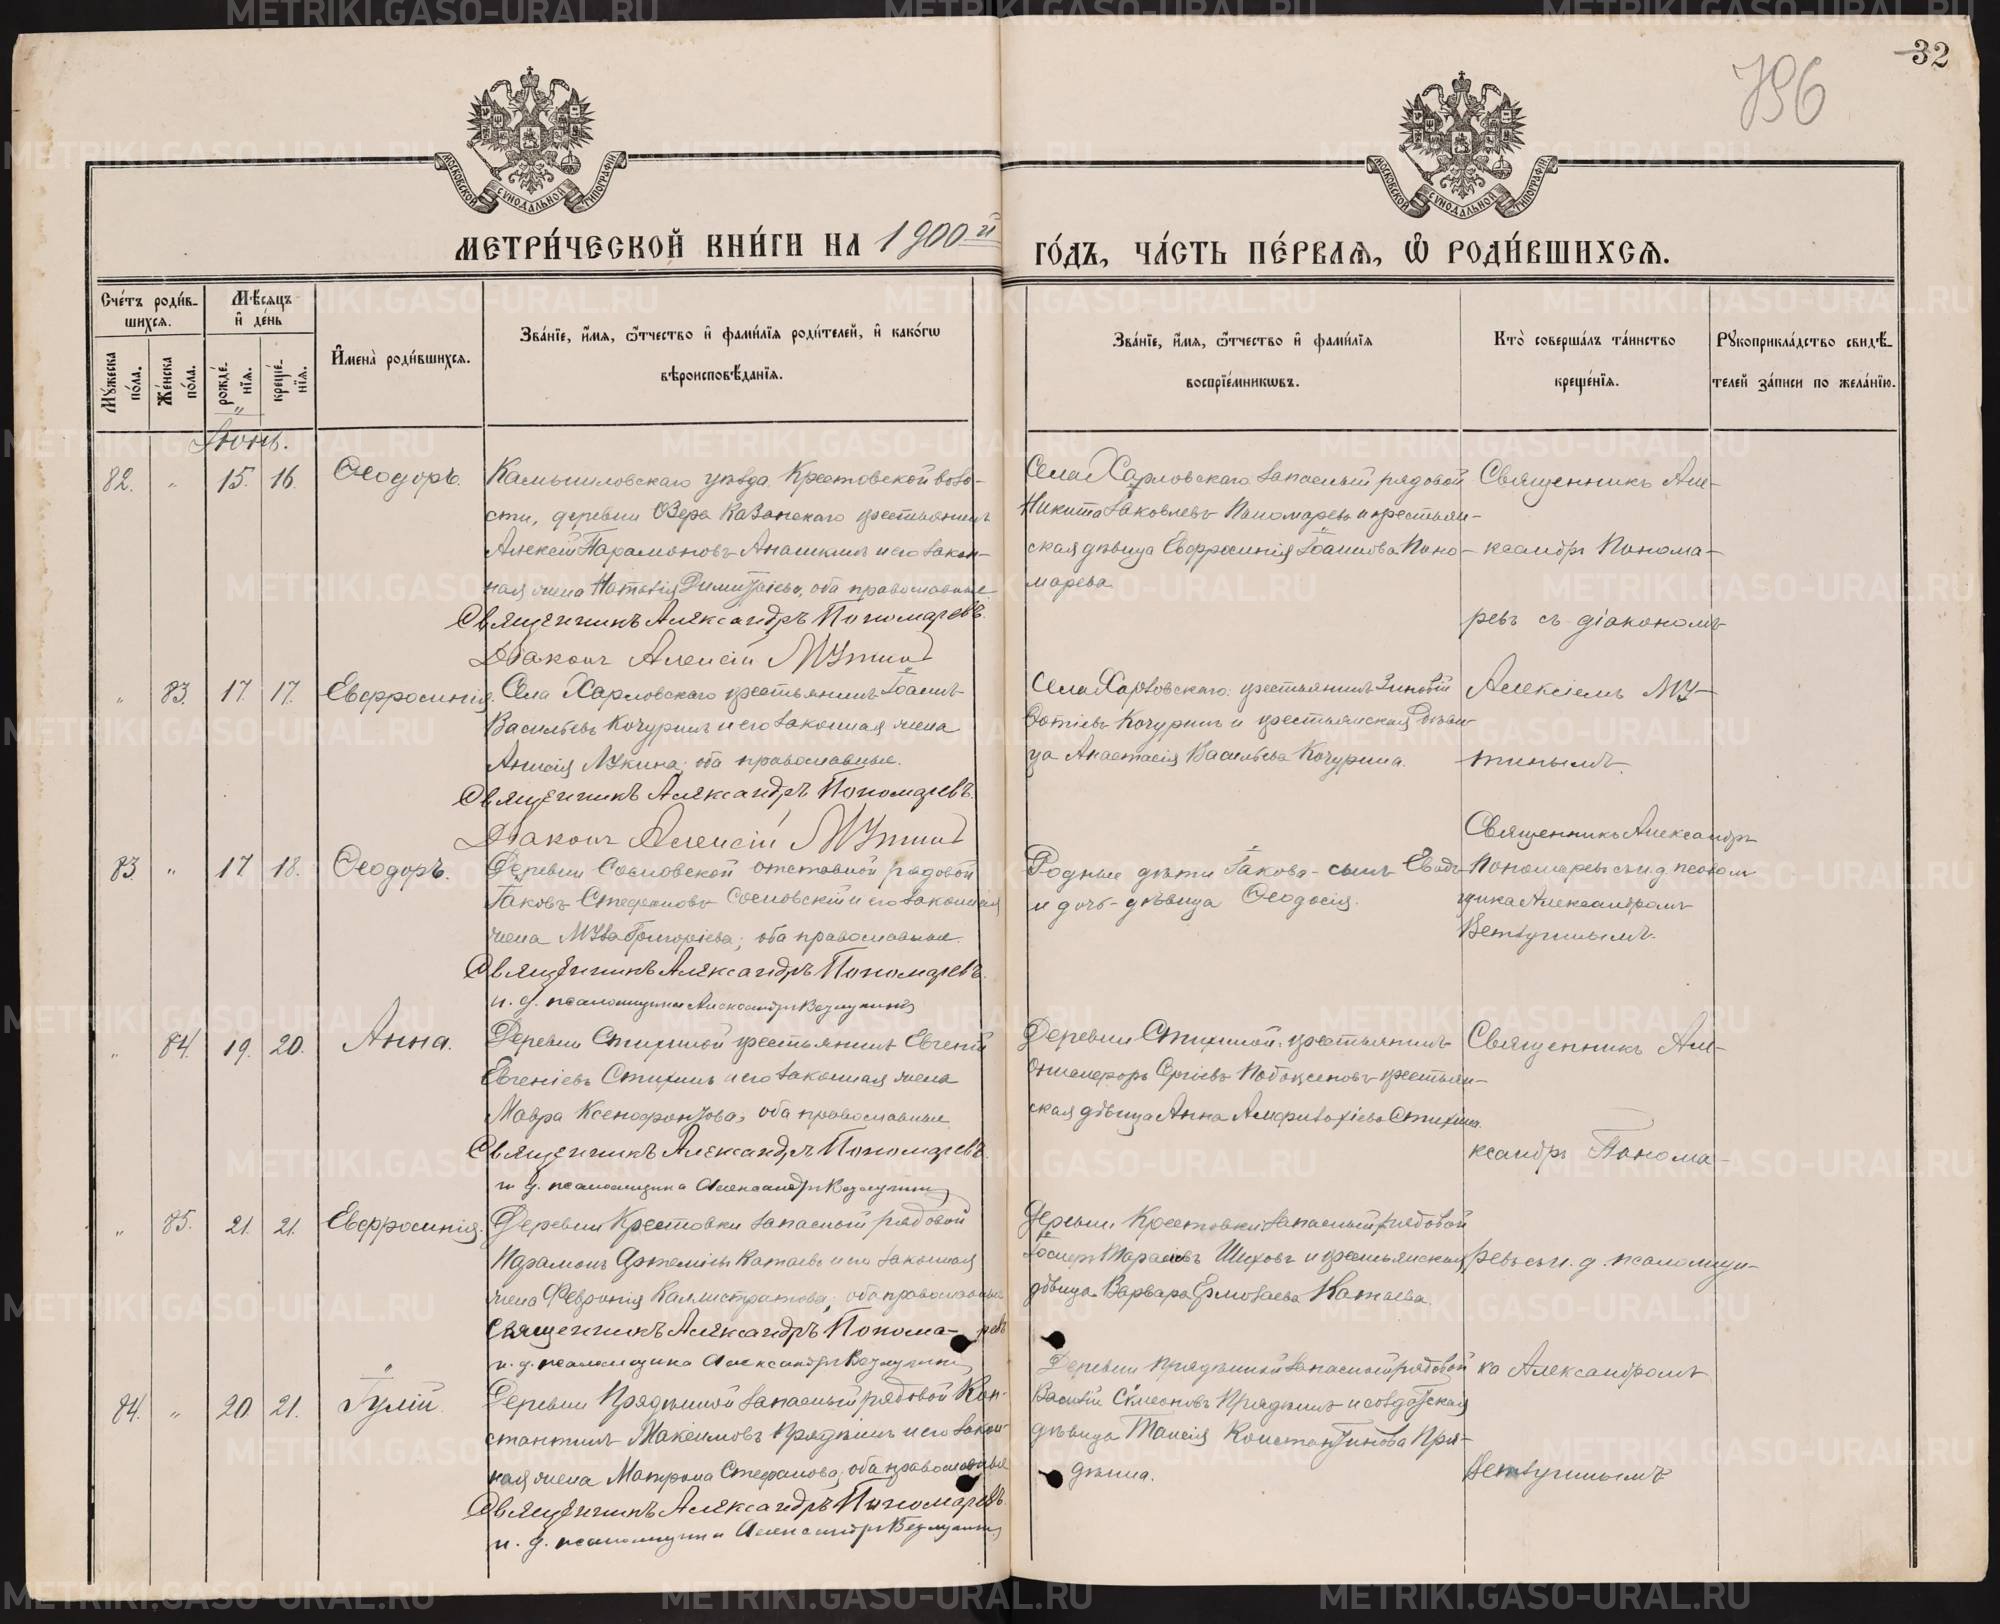 32
796
МОСКОВСКОЙ СѴНОДАЛЬНОЙ ТИПОГРАФІИ
МОСКОВСКОЙ СѴНОДАЛЬНОЙ ТИПОГРАФІИ
МЕТРИ́ЧЕСКОЙ КНИ́ГИ НА 1900й ГО́ДЪ, ЧА́СТЬ ПЕ́РВАѦ, Ѽ РОДИ́ВШИХСѦ.
Сче́тъ роди́в-
шихсѧ.
Мѣ́сѧцъ
и҆ де́нь
Мꙋ́жеска по́ла.
Же́нска по́ла.
рожде́-нїѧ.
креще́-нїѧ.
И҆мена̀ роди́вшихсѧ.
Зва́нїе, и҆́мѧ, ѻ҆́тчество и҆ фами́лїѧ роди́телей, и҆ како́гѡ
вѣроисповѣ́данїѧ.
Зва́нїе, и҆́мѧ, ѻ҆́тчество и҆ фами́лїѧ
воспрїе́мникѡвъ.
Кто̀ соверша́лъ та́инство
креще́нїѧ.
Рꙋкоприкла́дство свидѣ́-
телей за́писи по жела́нїю.
Іюнь.
82. " 15. 16. Ѳеодоръ.
Камышловскаго уѣзда Крестовской воло-
сти, деревни Озера Казанскаго крестьянинъ
Алексій Парамоновъ и его закон-
ная жена Наталія Димитріева, оба православные.
Священникъ Александръ Пономаревъ.
Діаконъ Алексій Мутинъ
Села Харловскаго запасный рядовой
Никита Іаковлевъ Пономаревъ и крестьян-
ская дѣвица Евфросинія Іоаннова Поно-
марева
Священникъ Але-
ксандръ Понома-
ревъ съ діакономъ
" 83. 17. 17. Евфросинія.
Села Харловскаго крестьянинъ Іоаннъ
Васильевъ Кочуринъ и его законная жена
Анисія Лукина, оба православные.
Священникъ Александръ Пономаревъ.
Діаконъ Алексій Мутинъ
Села Харловскаго крестьянинъ Зиновій
Фотіевъ Кочуринъ и крестьянская дѣви-
ца Анастасія Васильева Кочурина.
Алексіемъ Му-
тинымъ.
83. " 17 18. Ѳеодоръ.
Деревни Сосновской отставной рядовой
Іаковъ Стефановъ Сосновскій и его законная
жена Григоріева; оба православные.
Священникъ Александръ Пономаревъ.
и. д. псаломщика Александръ
Родные дѣти Іакова - сынъ
и дочь - дѣвица Ѳеодосія.
Священникъ Александръ
Пономаревъ съ и. д. псалом
щика Александромъ
" 84. 19. 20. Анна.
Деревни Стихиной крестьянинъ Евгеній
Евгеніевъ Стихинъ и его законная жена
Мавра Ксенофонтова, оба православные
Священникъ Александръ Пономаревъ.
и. д. псаломщика Александръ
Деревни Стихиной крестьянинъ
Сергіевъ крестьян-
ская дѣвица Анна Стихина.
Священникъ Але-
ксандръ Понома-
" 85. 21. 21. Евфросинія.
Деревни Крестовки запасный рядовой
Парамонъ Артеміевъ Катаевъ и его законная
жена Февронія Каллистратова; оба православные
Священникъ Александръ Понома-ревъ
и. д. псаломщика Александръ
Деревни Крестовки запасный рядовой
Іосифъ Тарасовъ Шиховъ и крестьянская
дѣвица Варвара Ермолаева Катаева.
ревъ съ и. д. псаломщи-
84. " 20. 21. Іулій.
Деревни Прядеиной запасный рядовой Кон-
стантинъ Максимовъ Прядеинъ и его закон-
ная жена Матрона Стефанова; оба православные
Священникъ Александръ Пономаревъ.
и. д. псаломщика Александръ
Деревни Прядеиной запасный рядовой
Василій Симеоновъ Прядеинъ и солдатская
дѣвица Таисія Константинова Пря-
деина.
ка Александромъ